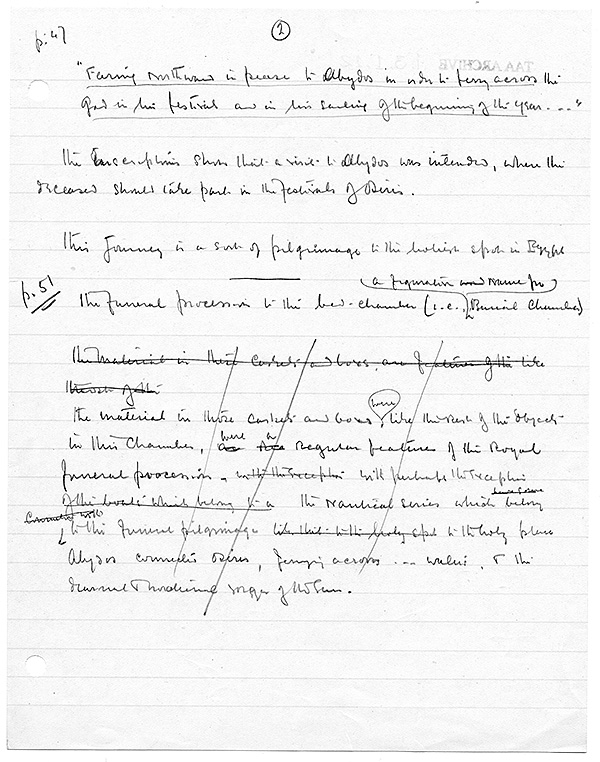 p. 47
2
TAA ARCHIVE
"Faring northward in peace to Abydos in order to ferry across the
God in his festival and in his sailing of the beginning of the year...."
The Inscriptions show that a visit to Abydos was intended, where the
deceased should take part in the Festivals of Osiris.
This Journey is a sort of pilgrimage to the holiest spot in Egypt
p. 51
a figurative and Name for
The Funeral procession to the bed-chamber (i.e., Burial Chamber)
The material in these caskets and boxes, are features of the like
the rest of the
were
The material in those caskets and boxes like the rest of the objects
in this Chamber, were a Regular feature of the Royal
funeral procession, with the exception with perhaps the exception
of the boats which belong to a the Nautical series which belong
Connected with
to the funeral pilgrimage like that to the holy spot to the holy place
Abydos Osiris, ferrying across ... & the
diurnal & nocturnal voyages of the Sun.